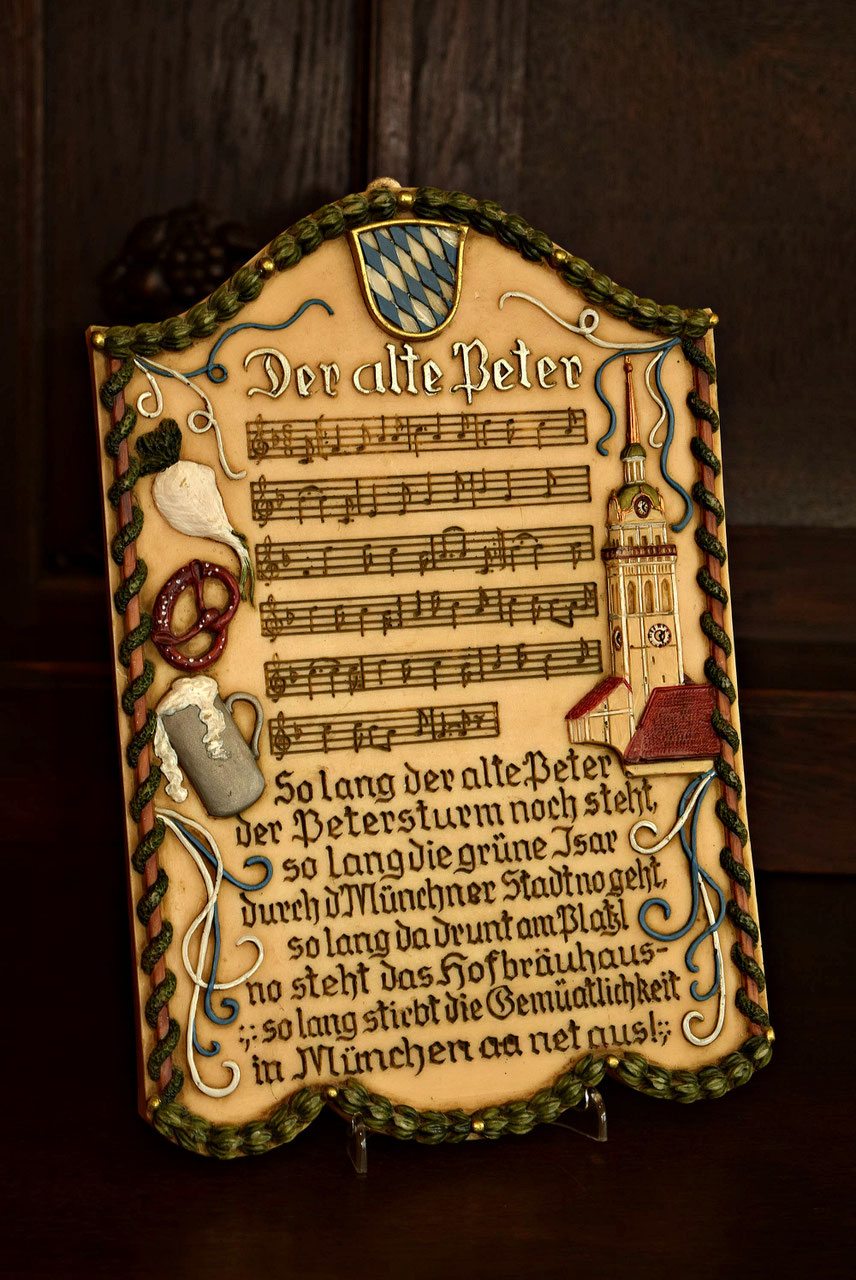 Der alte Peter
So lang der alte Peter
der Petersturm noch steht,
so lang die grüne Isar
durch d'Münchner Stadt no geht,
so lang da drunt am Platzl
no steht das Hofbräuhaus-
:,: so lang stirbt die Gemüatlichkeit
in München aa net aus! :,: